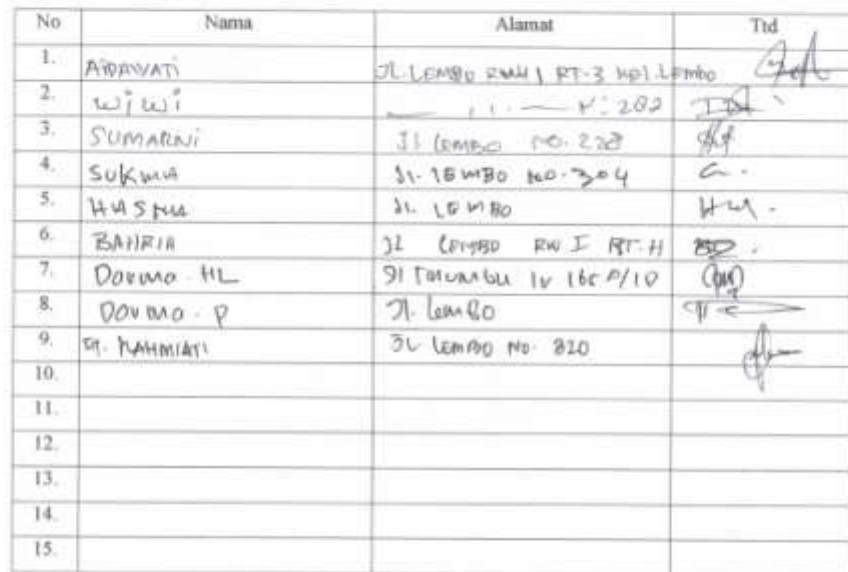 No Nama Alamat Ttd
1. AIDAWATI JL. LEMBO RW 1 RT-3 KEL. Lembo
2. wiwi 282
3. SUMARNI Jl LEMBO NO. 228
4. SUKMA Jl. LEMBO NO. 304
5. HASNA Jl. LEMBO
6. BAHRIA Jl LEMBO RW I RT.
7. Dorma. HL Jl IV
8. Dorma. P Jl. Lembo
9. RAHMIATI JL LEMBO NO. 320
10.
11.
12.
13.
14.
15.